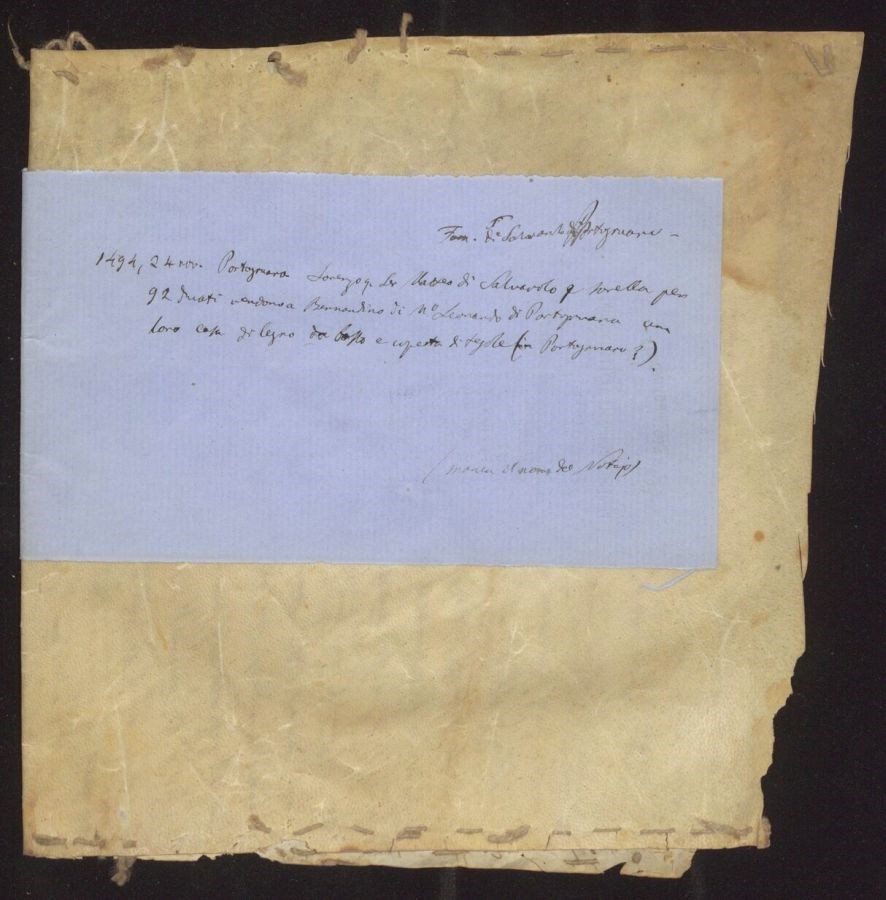 Fam. de Salvarolo Portogruaro –
1494, 24 nov. Portogruaro Lorenzo q. Ser Matteo di Salvarolo e sorella per
92 ducati vendono a Bernardino di Mº Leonardo di Portogruaro una
loro casa di legno da basso e coperta di tegole (in Portogruaro?)
(manca il nome del Notajo)